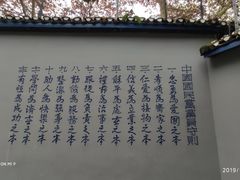 中國國民黨黨員守則
一 忠勇為愛國之本
二 孝順為齊家之本
三 仁愛為接物之本
四 信義為立業之本
五 和平為處世之本
六 禮節為治事之本
七 服從為負責之本
八 勤儉為服務之本
九 整潔為強身之本
十 助人為快樂之本
十一 學問為濟世之本
十二 有恆為成功之本
ON MI
2019/